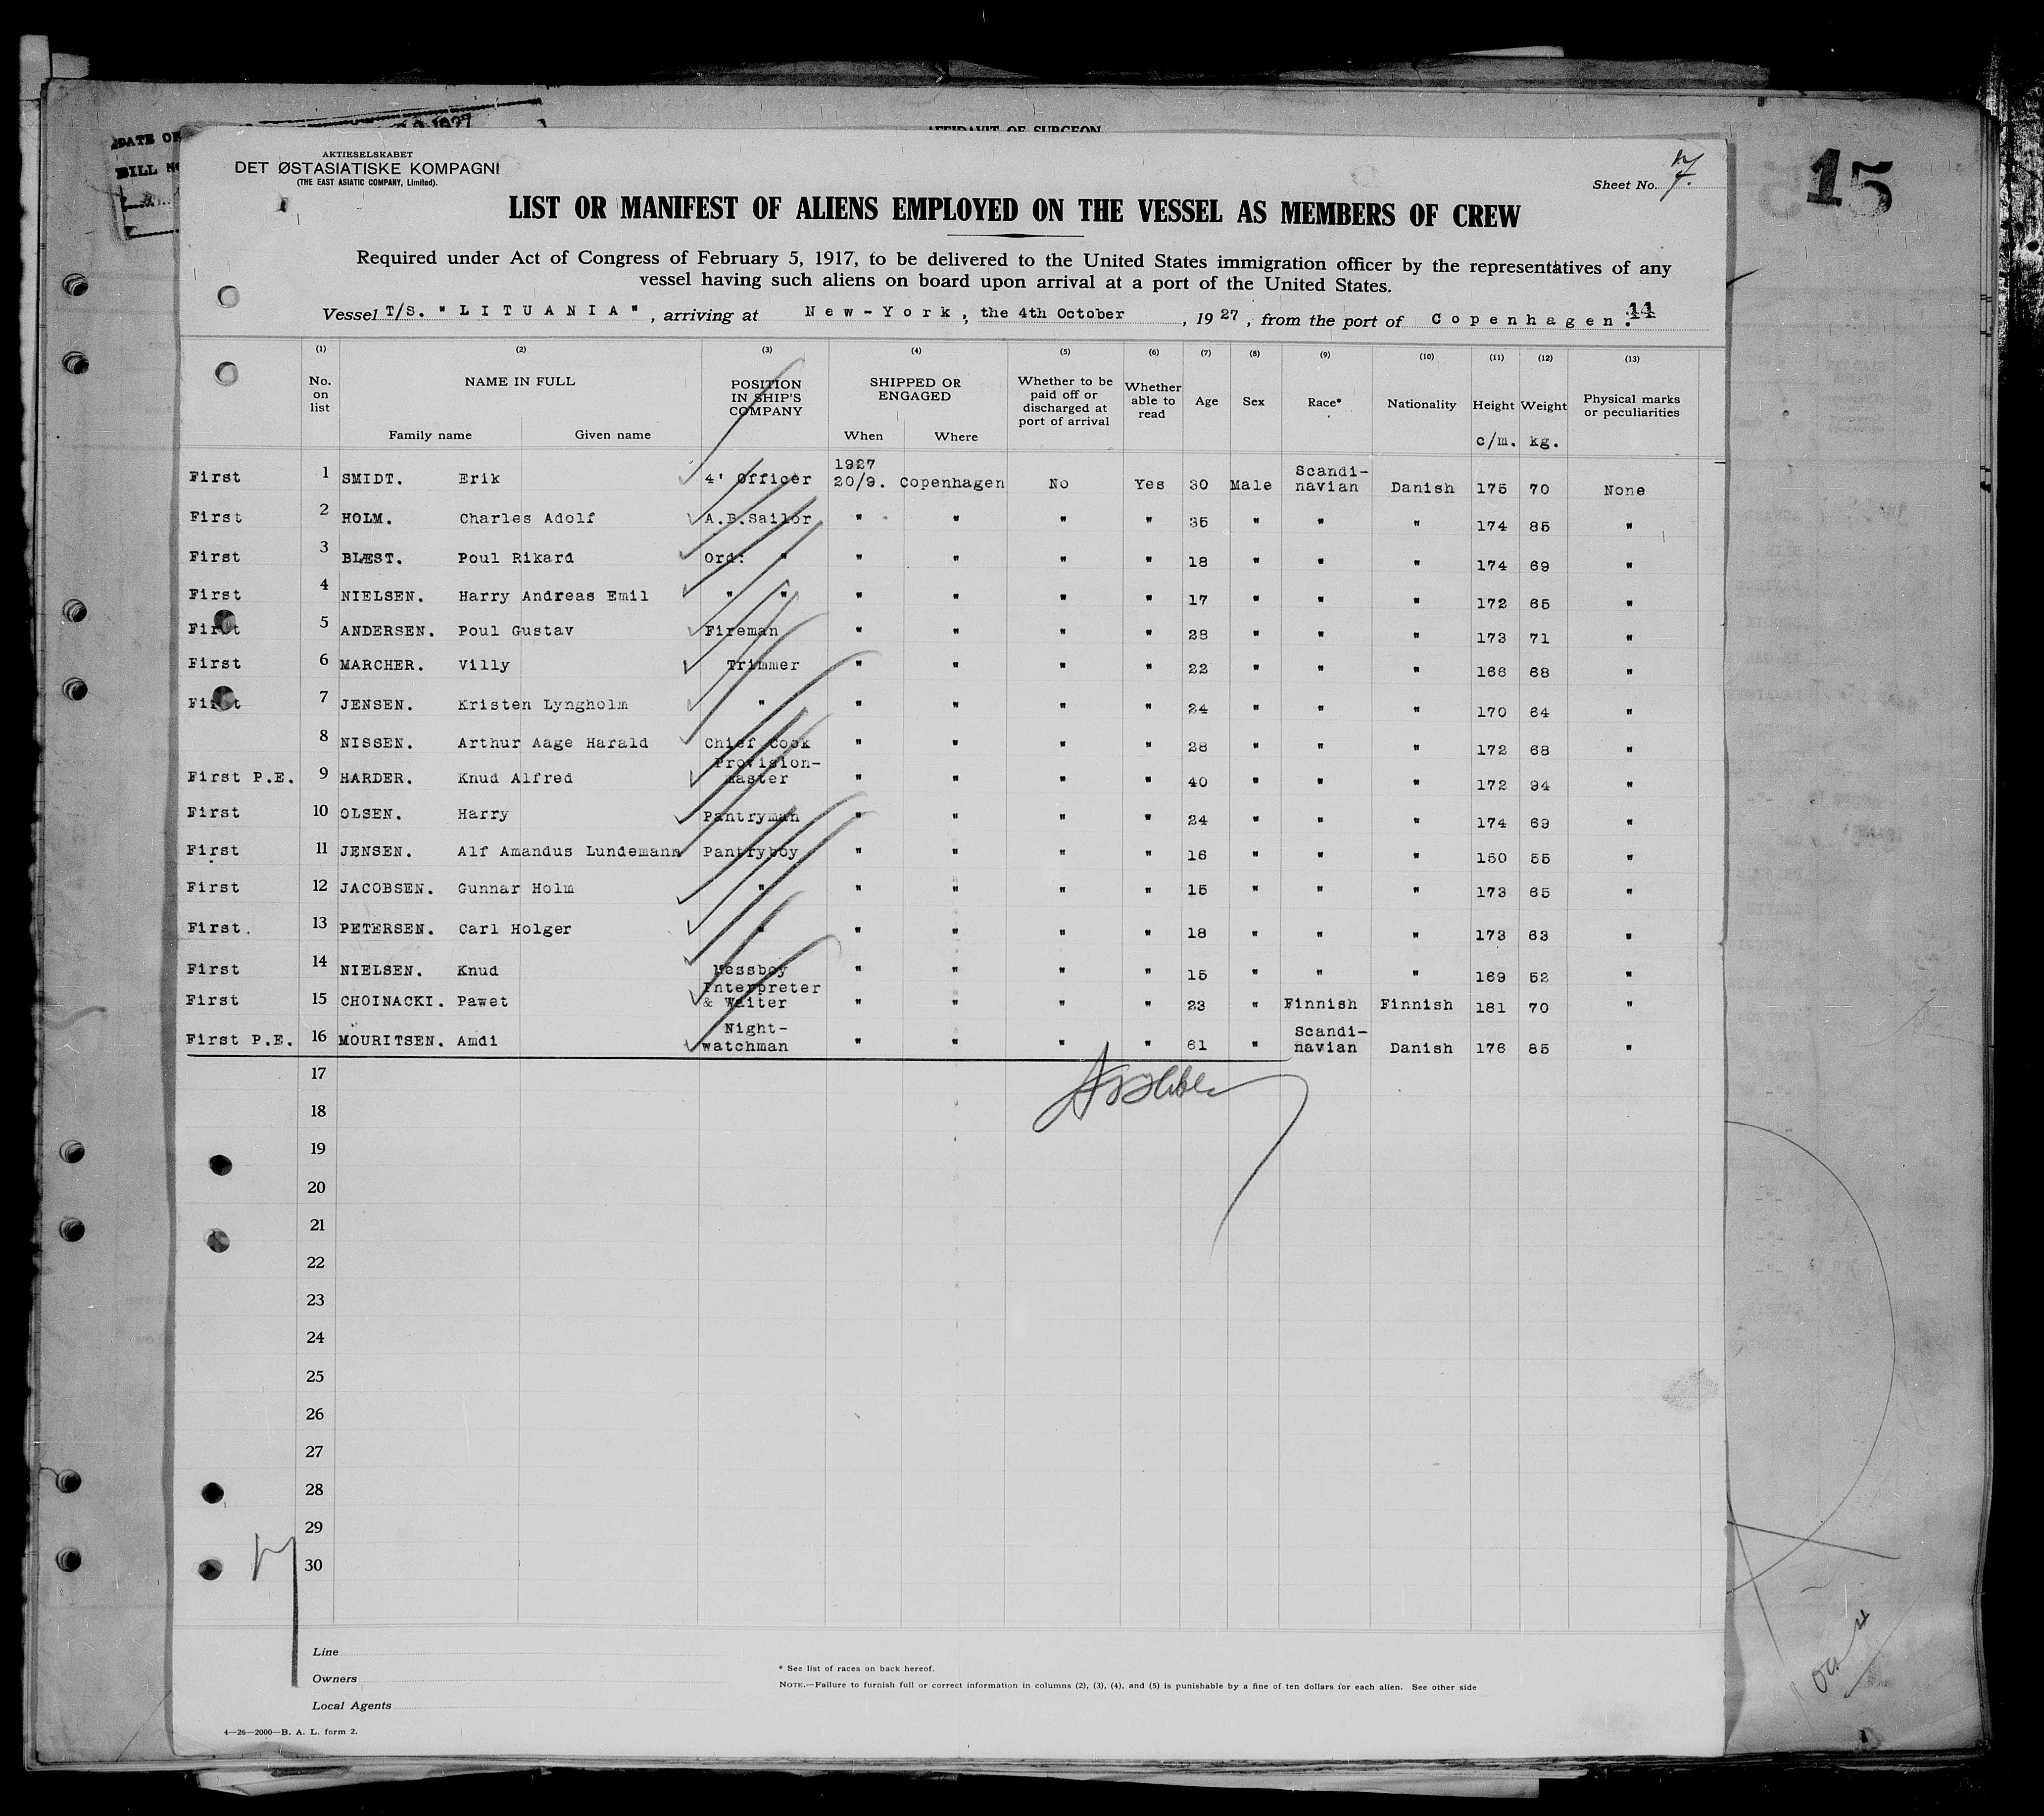 DATE OF
1927
BILL NO
AFFIDAVIT OF SURGEON
15
AKTIESELSKABET
DET ØSTASIATISKE KOMPAGNI
(THE EAST ASIATIC COMPANY, Limited).
Sheet No. 7.
LIST OR MANIFEST OF ALIENS EMPLOYED ON THE VESSEL AS MEMBERS OF CREW
Required under Act of Congress of February 5, 1917, to be delivered to the United States immigration officer by the representatives of any
vessel having such aliens on board upon arrival at a port of the United States.
Vessel T/S. "LITUANIA", arriving at New-York, the 4th October, 1927, from the port of Copenhagen. 14
(1) (2) (3) (4) (5) (6) (7) (8) (9) (10) (11) (12) (13)
No. on list NAME IN FULL Family name Given name POSITION IN SHIP'S COMPANY SHIPPED OR ENGAGED When Where Whether to be paid off or discharged at port of arrival Whether able to read Age Sex Race* Nationality Height c/m. Weight kg. Physical marks or peculiarities
First 1 SMIDT. Erik 4' Officer 1927 20/9. Copenhagen No Yes 30 Male Scandi-navian Danish 175 70 None
First 2 HOLM. Charles Adolf A.B.Sailor " " " " 35 " " " 174 85 "
First 3 BLÆST. Poul Rikard Ord: " " " " " 18 " " " 174 69 "
First 4 NIELSEN. Harry Andreas Emil " " " " " " 17 " " " 172 65 "
First 5 ANDERSEN. Poul Gustav Fireman " " " " 28 " " " 173 71 "
First 6 MARCHER. Villy Trimmer " " " " 22 " " " 166 68 "
First 7 JENSEN. Kristen Lyngholm " " " " " 24 " " " 170 64 "
8 NISSEN. Arthur Aage Harald Chief Cook " " " " 28 " " " 172 68 "
First P.E. 9 HARDER. Knud Alfred Provision-master " " " " 40 " " " 172 94 "
First 10 OLSEN. Harry Pantryman " " " " 24 " " " 174 69 "
First 11 JENSEN. Alf Amandus Lundemann Pantryboy " " " " 16 " " " 150 55 "
First 12 JACOBSEN. Gunnar Holm " " " " " 15 " " " 173 65 "
First. 13 PETERSEN. Carl Holger " " " " " 18 " " " 173 63 "
First 14 NIELSEN. Knud Messboy " " " " 15 " " " 169 52 "
First 15 CHOINACKI. Pawet Interpreter & Waiter " " " " 23 " Finnish Finnish 181 70 "
First P.E. 16 MOURITSEN. Amdi Night-watchman " " " " 61 " Scandi-navian Danish 176 85 "
17
18
19
20
21
22
23
24
25
26
27
28
29
30
Line
Owners
Local Agents
* See list of races on back hereof.
NOTE.—Failure to furnish full or correct information in columns (2), (3), (4), and (5) is punishable by a fine of ten dollars for each alien. See other side
4—26—2000—B. A. L. form 2.